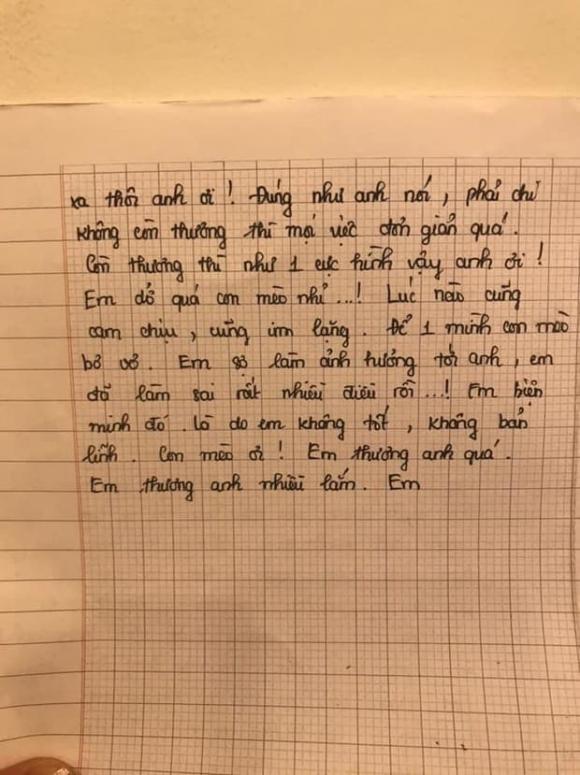 xa thôi anh ơi ! Đúng như anh nói, phải chi
không còn thương thì mọi việc đơn giản quá.
Còn thương thì như 1 cực hình vậy anh ơi !
Em dở quá con mèo nhỉ...! Lúc nào cũng
cam chịu, cũng im lặng. Để 1 mình con mèo
bơ vơ. Em sợ làm ảnh hưởng tới anh, em
đã làm sai rất nhiều điều rồi...! Em biện
minh đó. Là do em không tốt, không bản
lĩnh. Con mèo ơi ! Em thương anh quá.
Em thương anh nhiều lắm. Em